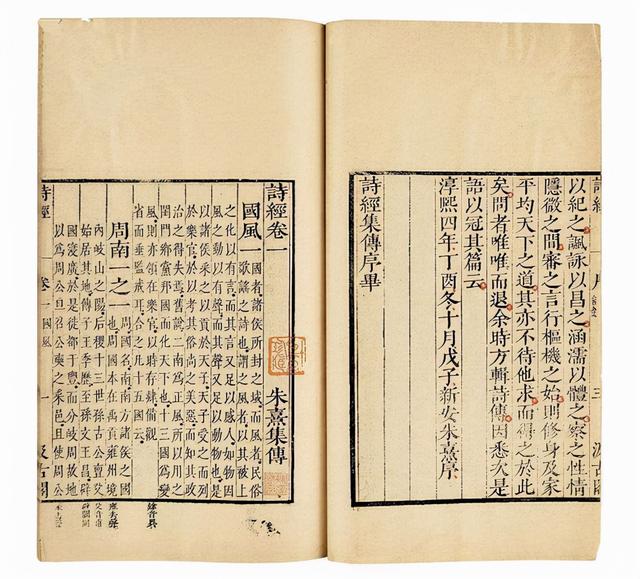 以紀之諷詠以昌之涵濡以體之察之性情
隱微之間審之言行樞機之始則修身及家
平均天下之道其亦不待他求而得之於此
矣問者唯唯而退余時方輯詩傳因悉次是
語以冠其篇云
淳熙四年丁酉冬十月戊子新安朱熹序
詩經集傳序畢
詩經卷一 朱熹集傳
國風一 國者諸侯所封之域而風者民俗
歌謠之詩也謂之風者以其被上
之化以有言而其言又足以感人如物因
風之動以有聲而其聲又足以動物也是
以諸侯采之以貢於天子天子受之而列
於樂官於以考其俗尚之美惡而知其政
治之得失焉舊說二南為正風所以用之
閨門鄉黨邦國而化天下也十三國為變
風則亦領在樂官以時存肄備觀
省而垂監戒耳合之凡十五國云
周南一之一 周國名南南方諸侯之國
也周國本在禹貢雍州境
內岐山之陽后稷十三世孫古公亶父
始居其地傳子王季歷至孫文王昌辟
國寖廣於是徙都于豐而分岐周故地
以為周公旦召公奭之采邑且使周公
詩經 卷一國風 一 汲古閣